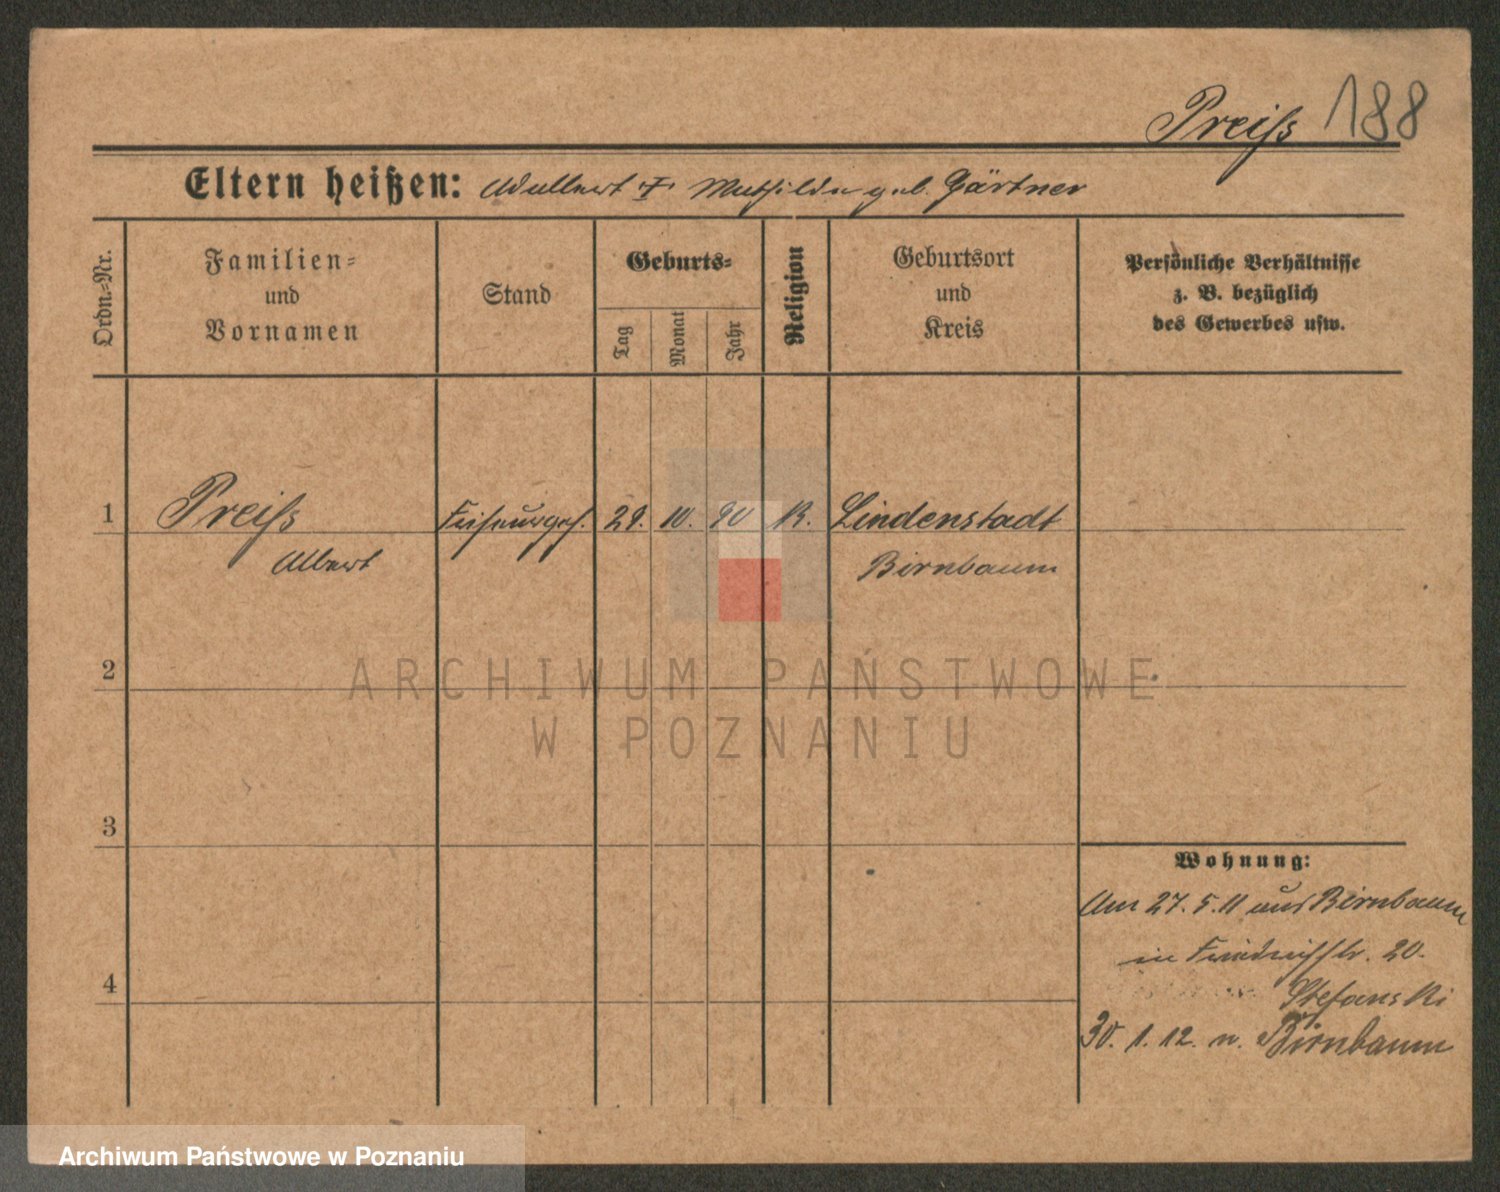 Preiſs 188
Eltern heißen: Adalbert † Mathilde geb. Gärtner
Ordn.-Nr.
Familien-
und
Vornamen
Stand
Geburts-
Tag
Monat
Jahr
Religion
Geburtsort
und
Kreis
Persönliche Verhältnisse
z. B. bezüglich
des Gewerbes usw.
1 Preiſs Friseurgeh. 29. 10. 90 K. Lindenstadt
Albert Birnbaum
2
ARCHIWUM PAŃSTWOWE
W POZNANIU
3
Wohnung:
Am 27. 5. 11 aus Birnbaum
in Friedrichstr. 20.
4
Stefanski
30. 1. 12. n. Birnbaum
Archiwum Państwowe w Poznaniu